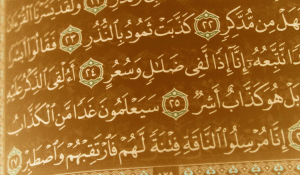 وَلَقَدْ يَسَّرْنَا
هَلْ مِن مُّدَّكِرٍ ٢٢ كَذَّبَتْ ثَمُودُ بِٱلنُّذُرِ ٢٣ فَقَالُوٓا۟
نَّتَّبِعُهُۥٓ إِنَّآ إِذًا لَّفِى ضَلَٰلٍ وَسُعُرٍ ٢٤ أَءُلْقِىَ ٱلذِّكْرُ عَلَيْهِ
هُوَ كَذَّابٌ أَشِرٌ ٢٥ سَيَعْلَمُونَ غَدًا مَّنِ ٱلْكَذَّابُ
إِنَّا مُرْسِلُوا۟ ٱلنَّاقَةِ فِتْنَةً لَّهُمْ فَٱرْتَقِبْهُمْ وَٱصْطَبِرْ ٢٧